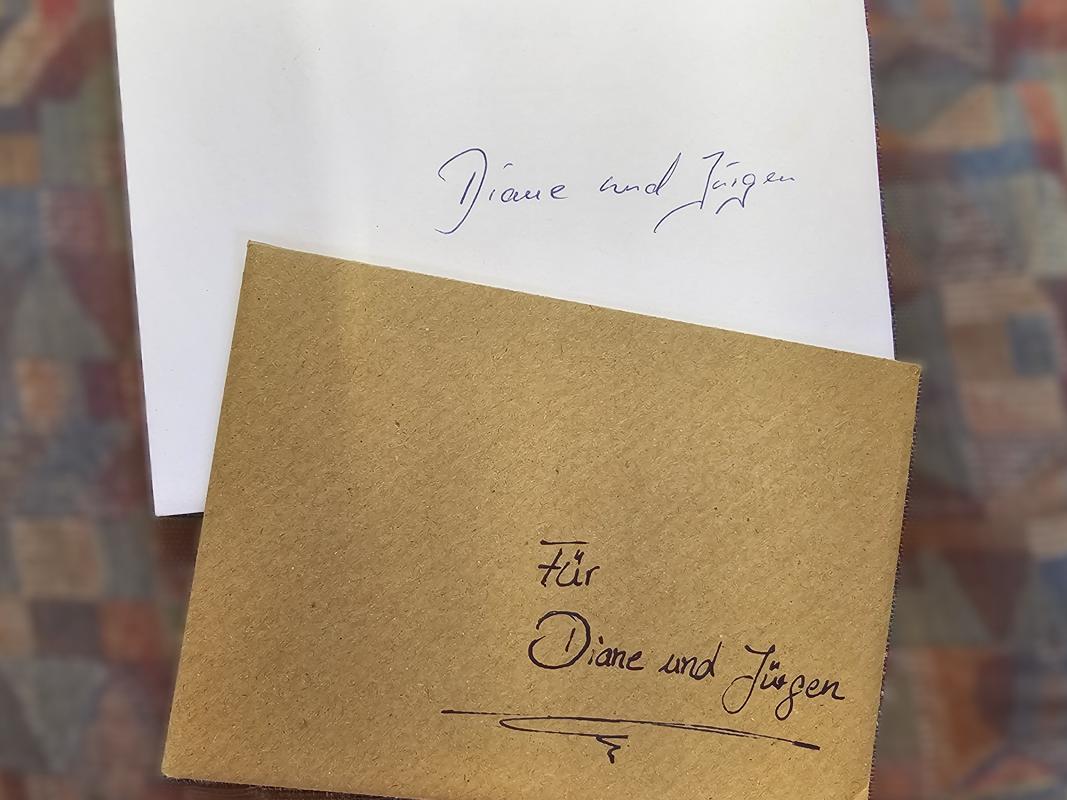 Diane und Jürgen
Für
Diane und Jürgen